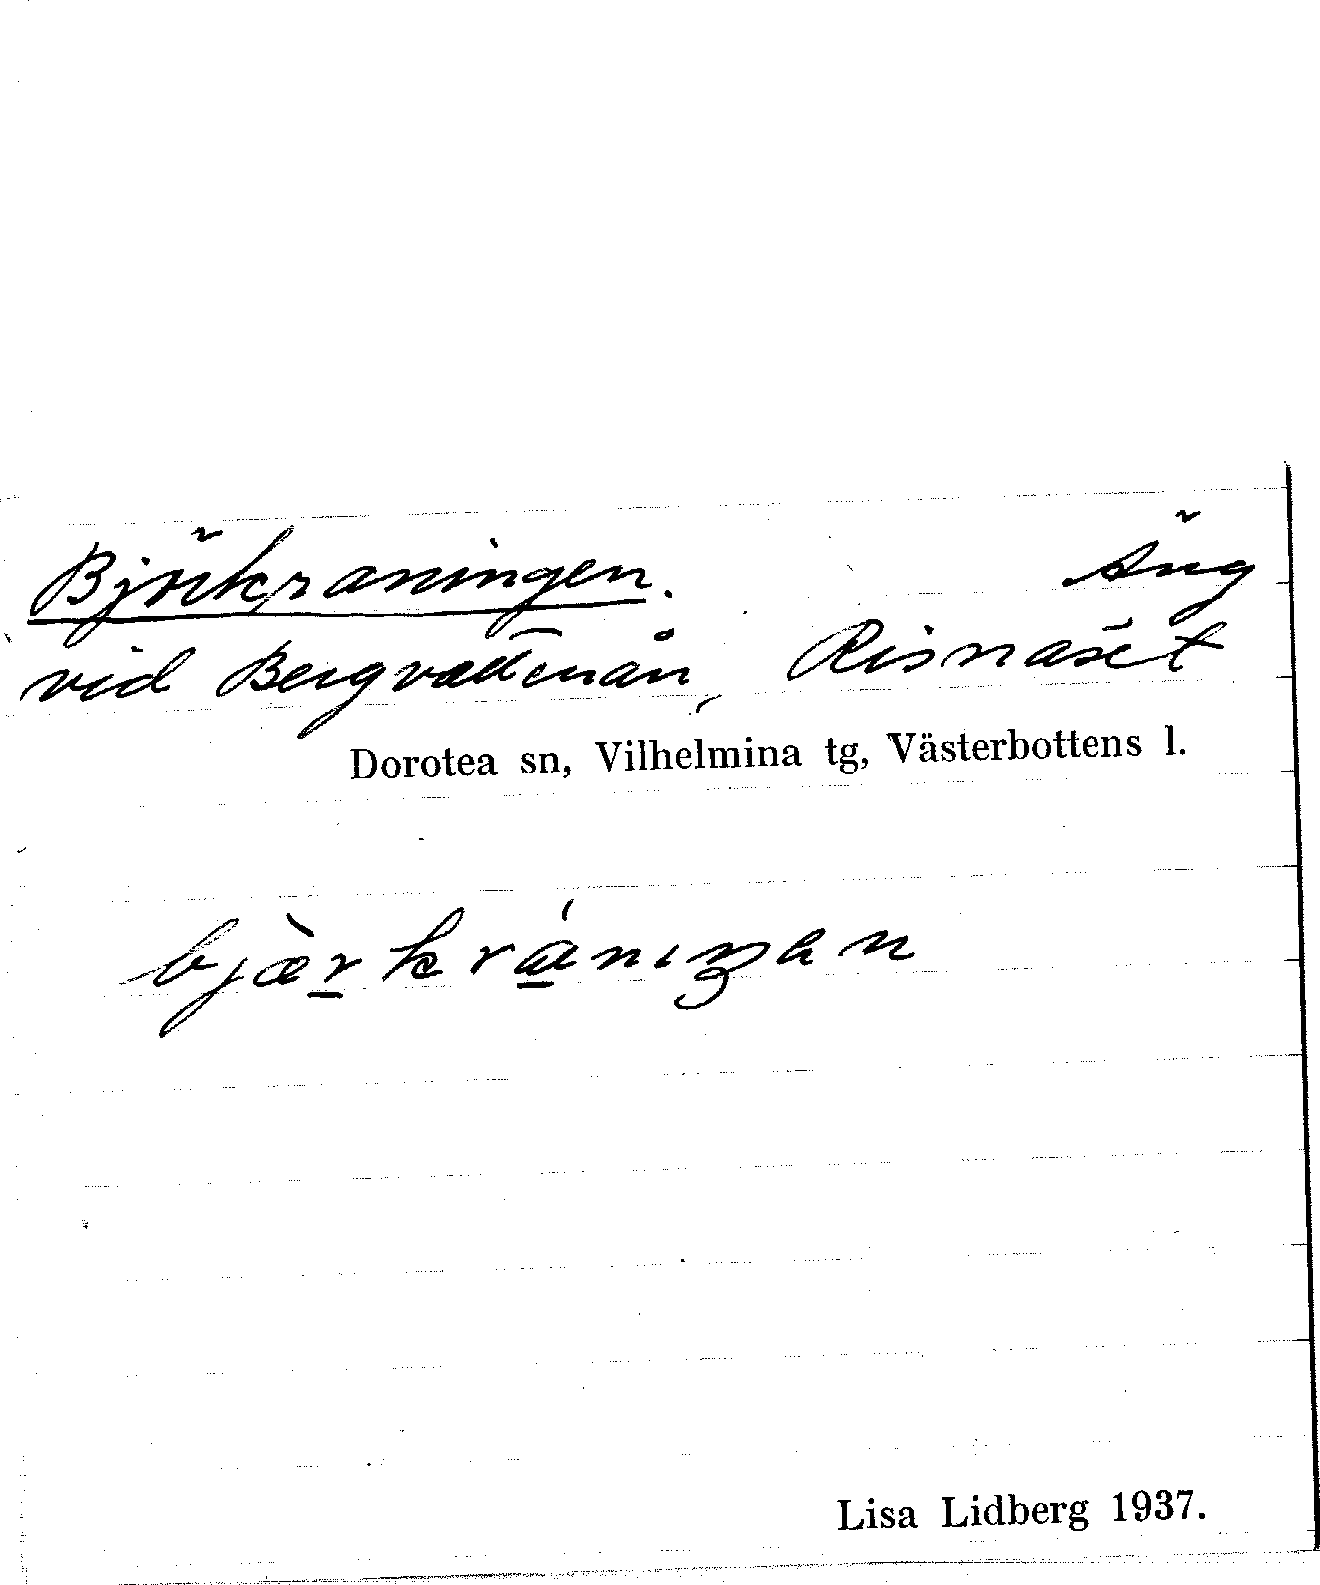 Björkraningen. Äng
vid Bergvattenån, Risnäset
Dorotea sn, Vilhelmina tg, Västerbottens l.
bjæ̀rkrániŋan
Lisa Lidberg 1937.